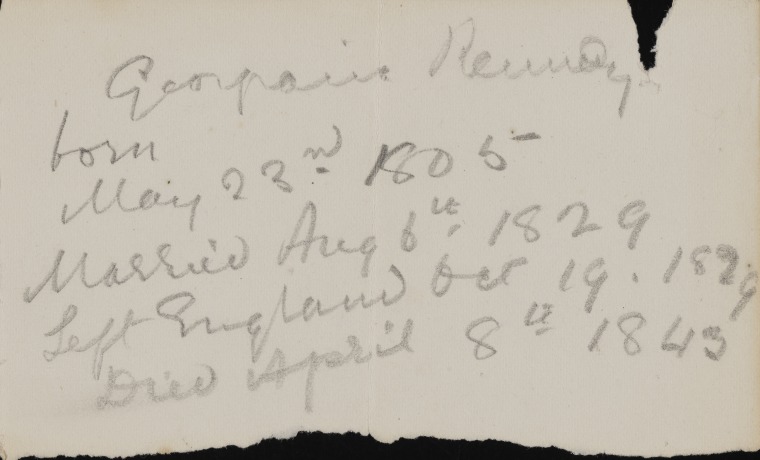 Georgaina Kennedy
born
May 23rd 1805
Married Aug 6th 1829
Left England Oct 19. 1829
Died April 8th 1843